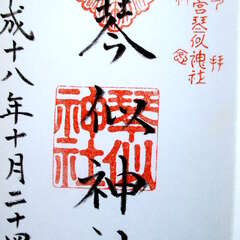 宮琴似神社
琴似神社
琴似
神社
成十八年十月二十四